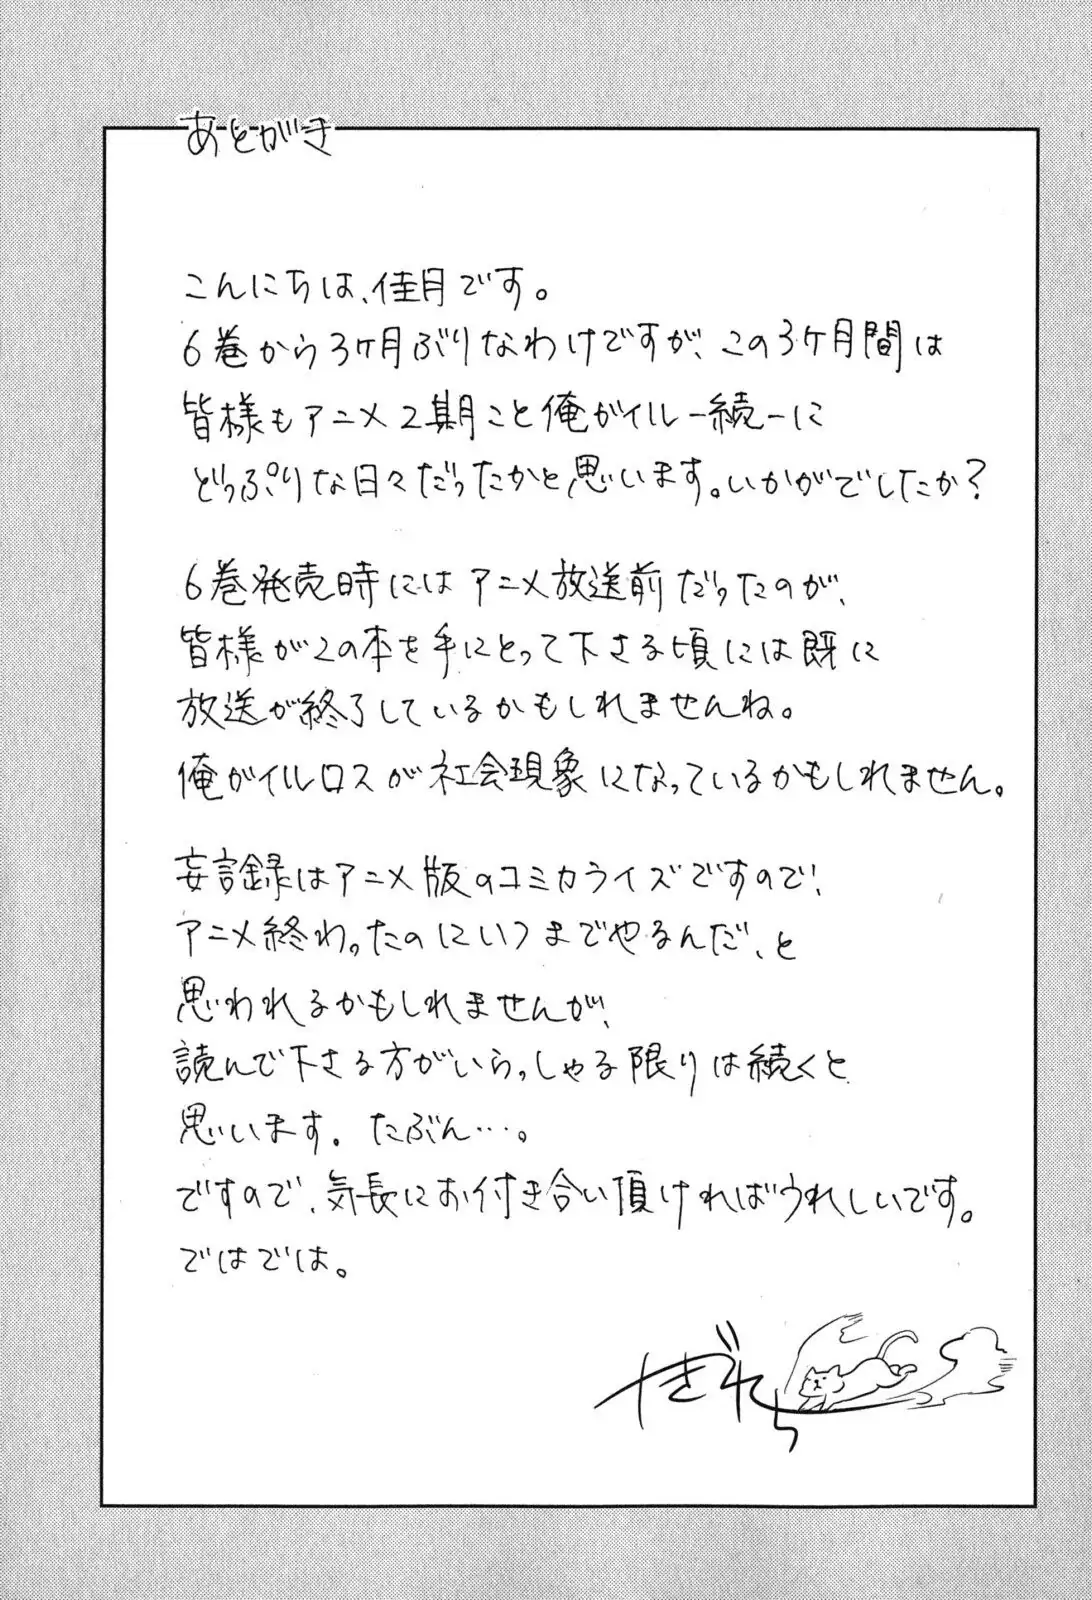 あとがき
こんにちは、佳月です。
6巻から3ヶ月ぶりなわけですが、この3ケ月間は
皆様もアニメ2期こと俺ガイル-続-に
どっぷりな日々だったかと思います。いかがでしたか?
6巻発売時にはアニメ放送前だったのが、
皆様がこの本を手にとって下さる頃には既に
放送が終了しているかもしれませんね。
俺ガイルロスが社会現象になっているかもしれません。
妄言録はアニメ版のコミカライズですので、
アニメ終わったのにいつまでやるんだ、と
思われるかもしれませんが、
読んで下さる方がいらっしゃる限りは続くと
思います。たぶん…。
ですので、気長にお付き合い頂ければうれしいです。
ではでは。